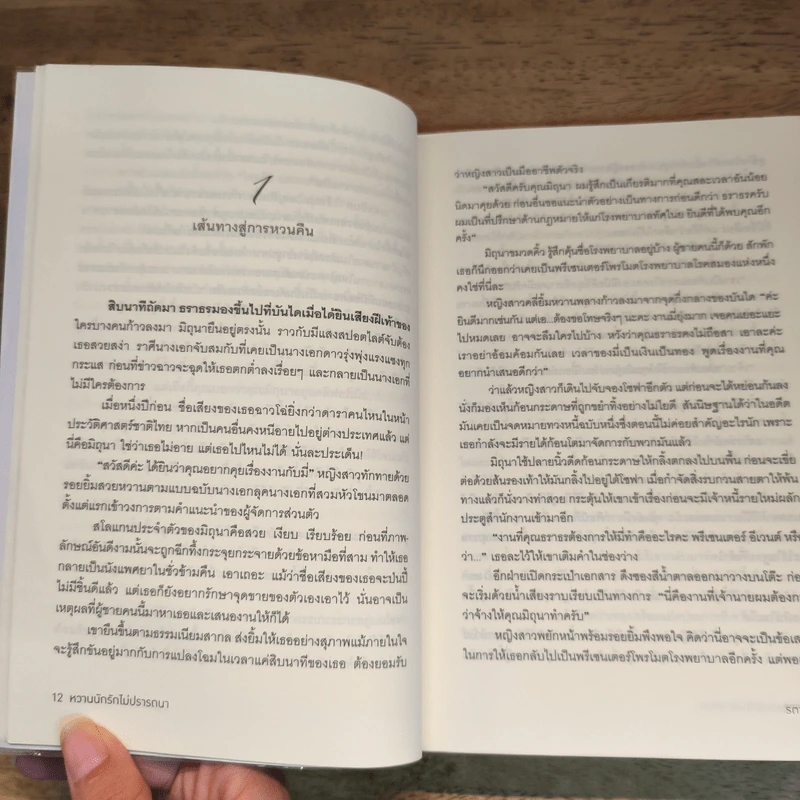 1
เส้นทางสู่การหวนคืน
สิบนาทีถัดมา ธราธรมองขึ้นไปที่บันไดเมื่อได้ยินเสียงฝีเท้าของ
ใครบางคนก้าวลงมา มิถุนายืนอยู่ตรงนั้น ราวกับมีแสงสปอตไลต์จับต้อง
เธอสวยสง่า ราศีนางเอกจับสมกับที่เคยเป็นนางเอกดาวรุ่งพุ่งแรงแซงทุก
กระแส ก่อนที่ข่าวฉาวจะฉุดให้เธอตกต่ำลงเรื่อยๆ และกลายเป็นนางเอกที่
ไม่มีใครต้องการ
เมื่อหนึ่งปีก่อน ชื่อเสียงของเธอฉาวโฉ่ยิ่งกว่าดาราคนไหนในหน้า
ประวัติศาสตร์ชาติไทย หากเป็นคนอื่นคงหนีอายไปอยู่ต่างประเทศแล้ว แต่
นี่คือมิถุนา ใช่ว่าเธอไม่อาย แต่เธอไปไหนไม่ได้ นั่นละประเด็น!
“สวัสดีค่ะ ได้ยินว่าคุณอยากคุยเรื่องงานกับมี่” หญิงสาวทักทายด้วย
รอยยิ้มสวยหวานตามแบบฉบับนางเอกลุคนางเอกที่สวมหัวโขนมาตลอด
ตั้งแต่แรกเข้าวงการตามคำแนะนำของผู้จัดการส่วนตัว
สโลแกนประจำตัวของมิถุนาคือสวย เงียบ เรียบร้อย ก่อนที่ภาพ-
ลักษณ์อันดีงามนั้นจะถูกฉีกทึ้งกระจุยกระจายด้วยข้อหามือที่สาม ทำให้เธอ
กลายเป็นนังแพศยาในชั่วข้ามคืน เอาเถอะ แม้ว่าชื่อเสียงของเธอจะปนปี้
ไม่มีชิ้นดีแล้ว แต่เธอก็ยังอยากรักษาจุดขายของตัวเองเอาไว้ นั่นอาจเป็น
เหตุผลที่ผู้ชายคนนี้มาหาเธอและเสนองานให้ก็ได้
เขายืนขึ้นตามธรรมเนียมสากล ส่งยิ้มให้เธออย่างสุภาพแม้ภายในใจ
จะรู้สึกขันอยู่มากกับการแปลงโฉมในเวลาแค่สิบนาทีของเธอ ต้องยอมรับ
12 หวานนักรักไม่ปรารถนา
ว่าหญิงสาวเป็นมืออาชีพตัวจริง
“สวัสดีครับคุณมิถุนา ผมรู้สึกเป็นเกียรติมากที่คุณสละเวลาอันน้อย
นิดมาคุยด้วย ก่อนอื่นขอแนะนำตัวอย่างเป็นทางการก่อนดีกว่า ธราธรครับ
ผมเป็นที่ปรึกษาด้านกฎหมายให้แก่โรงพยาบาลทัศไนย ยินดีที่ได้พบคุณอีก
ครั้ง”
มิถุนาขมวดคิ้ว รู้สึกคุ้นชื่อโรงพยาบาลอยู่บ้าง ผู้ชายคนนี้ก็ด้วย สักพัก
เธอก็นึกออกว่าเคยเป็นพรีเซนเตอร์โพรโมตโรงพยาบาลโรคสมองแห่งหนึ่ง
คงใช่ที่นี่ละ
หญิงสาวคลี่ยิ้มหวานพลางก้าวลงมาจากจุดกึ่งกลางของบันได “ค่ะ
ยินดีมากเช่นกัน แต่เอ...ต้องขอโทษจริงๆ นะคะ งานมี่ยุ่งมาก เจอคนเยอะแยะ
ไปหมดเลย อาจจะลืมใครไปบ้าง หวังว่าคุณธราธรคงไม่ถือสา เอาละค่ะ
เราอย่าอ้อมค้อมกันเลย เวลาของมี่เป็นเงินเป็นทอง พูดเรื่องงานที่คุณ
อยากนำเสนอดีกว่า”
ว่าแล้วหญิงสาวก็เดินไปจับจองโซฟาอีกตัว แต่ก่อนจะได้หย่อนก้นลง
นั่งก็มองเห็นก้อนกระดาษที่ถูกขยำทิ้งอย่างไม่ไยดี สันนิษฐานได้ว่าในอดีต
มันเคยเป็นจดหมายทวงหนี้ฉบับหนึ่งซึ่งตอนนี้ไม่ค่อยสำคัญอะไรนัก เพราะ
เธอกำลังจะมีรายได้ก้อนโตมาจัดการกับพวกมันแล้ว
มิถุนาใช้ปลายนิ้วดีดก้อนกระดาษให้กลิ้งตกลงไปบนพื้น ก่อนจะเขี่ย
ต่อด้วยส้นรองเท้าให้มันกลิ้งไปอยู่ใต้โซฟา เมื่อกำจัดสิ่งรบกวนสายตาให้พ้น
ทางแล้วก็นั่งวางท่าสวย กระตุ้นให้เขาเข้าเรื่องก่อนจะมีเจ้าหนี้รายใหม่ผลัก
ประตูสำนักงานเข้ามาอีก
“งานที่คุณธราธรต้องการให้มี่ทำคืออะไรคะ พรีเซนเตอร์ อีเวนต์ หรือ
ว่า...” เธอละไว้ให้เขาเติมคำในช่องว่าง
อีกฝ่ายเปิดกระเป๋าเอกสาร ดึงซองสีน้ำตาลออกมาวางบนโต๊ะ ก่อน
จะเริ่มด้วยน้ำเสียงราบเรียบเป็นทางการ “นี่คืองานที่เจ้านายผมต้องกา
ว่าจ้างให้คุณมิถุนาทำครับ”
หญิงสาวพยักหน้าพร้อมรอยยิ้มพึงพอใจ คิดว่านี่อาจจะเป็นข้อเส
ในการให้เธอกลับไปเป็นพรีเซนเตอร์โพรโมตโรงพยาบาลอีกครั้ง แต่พอ